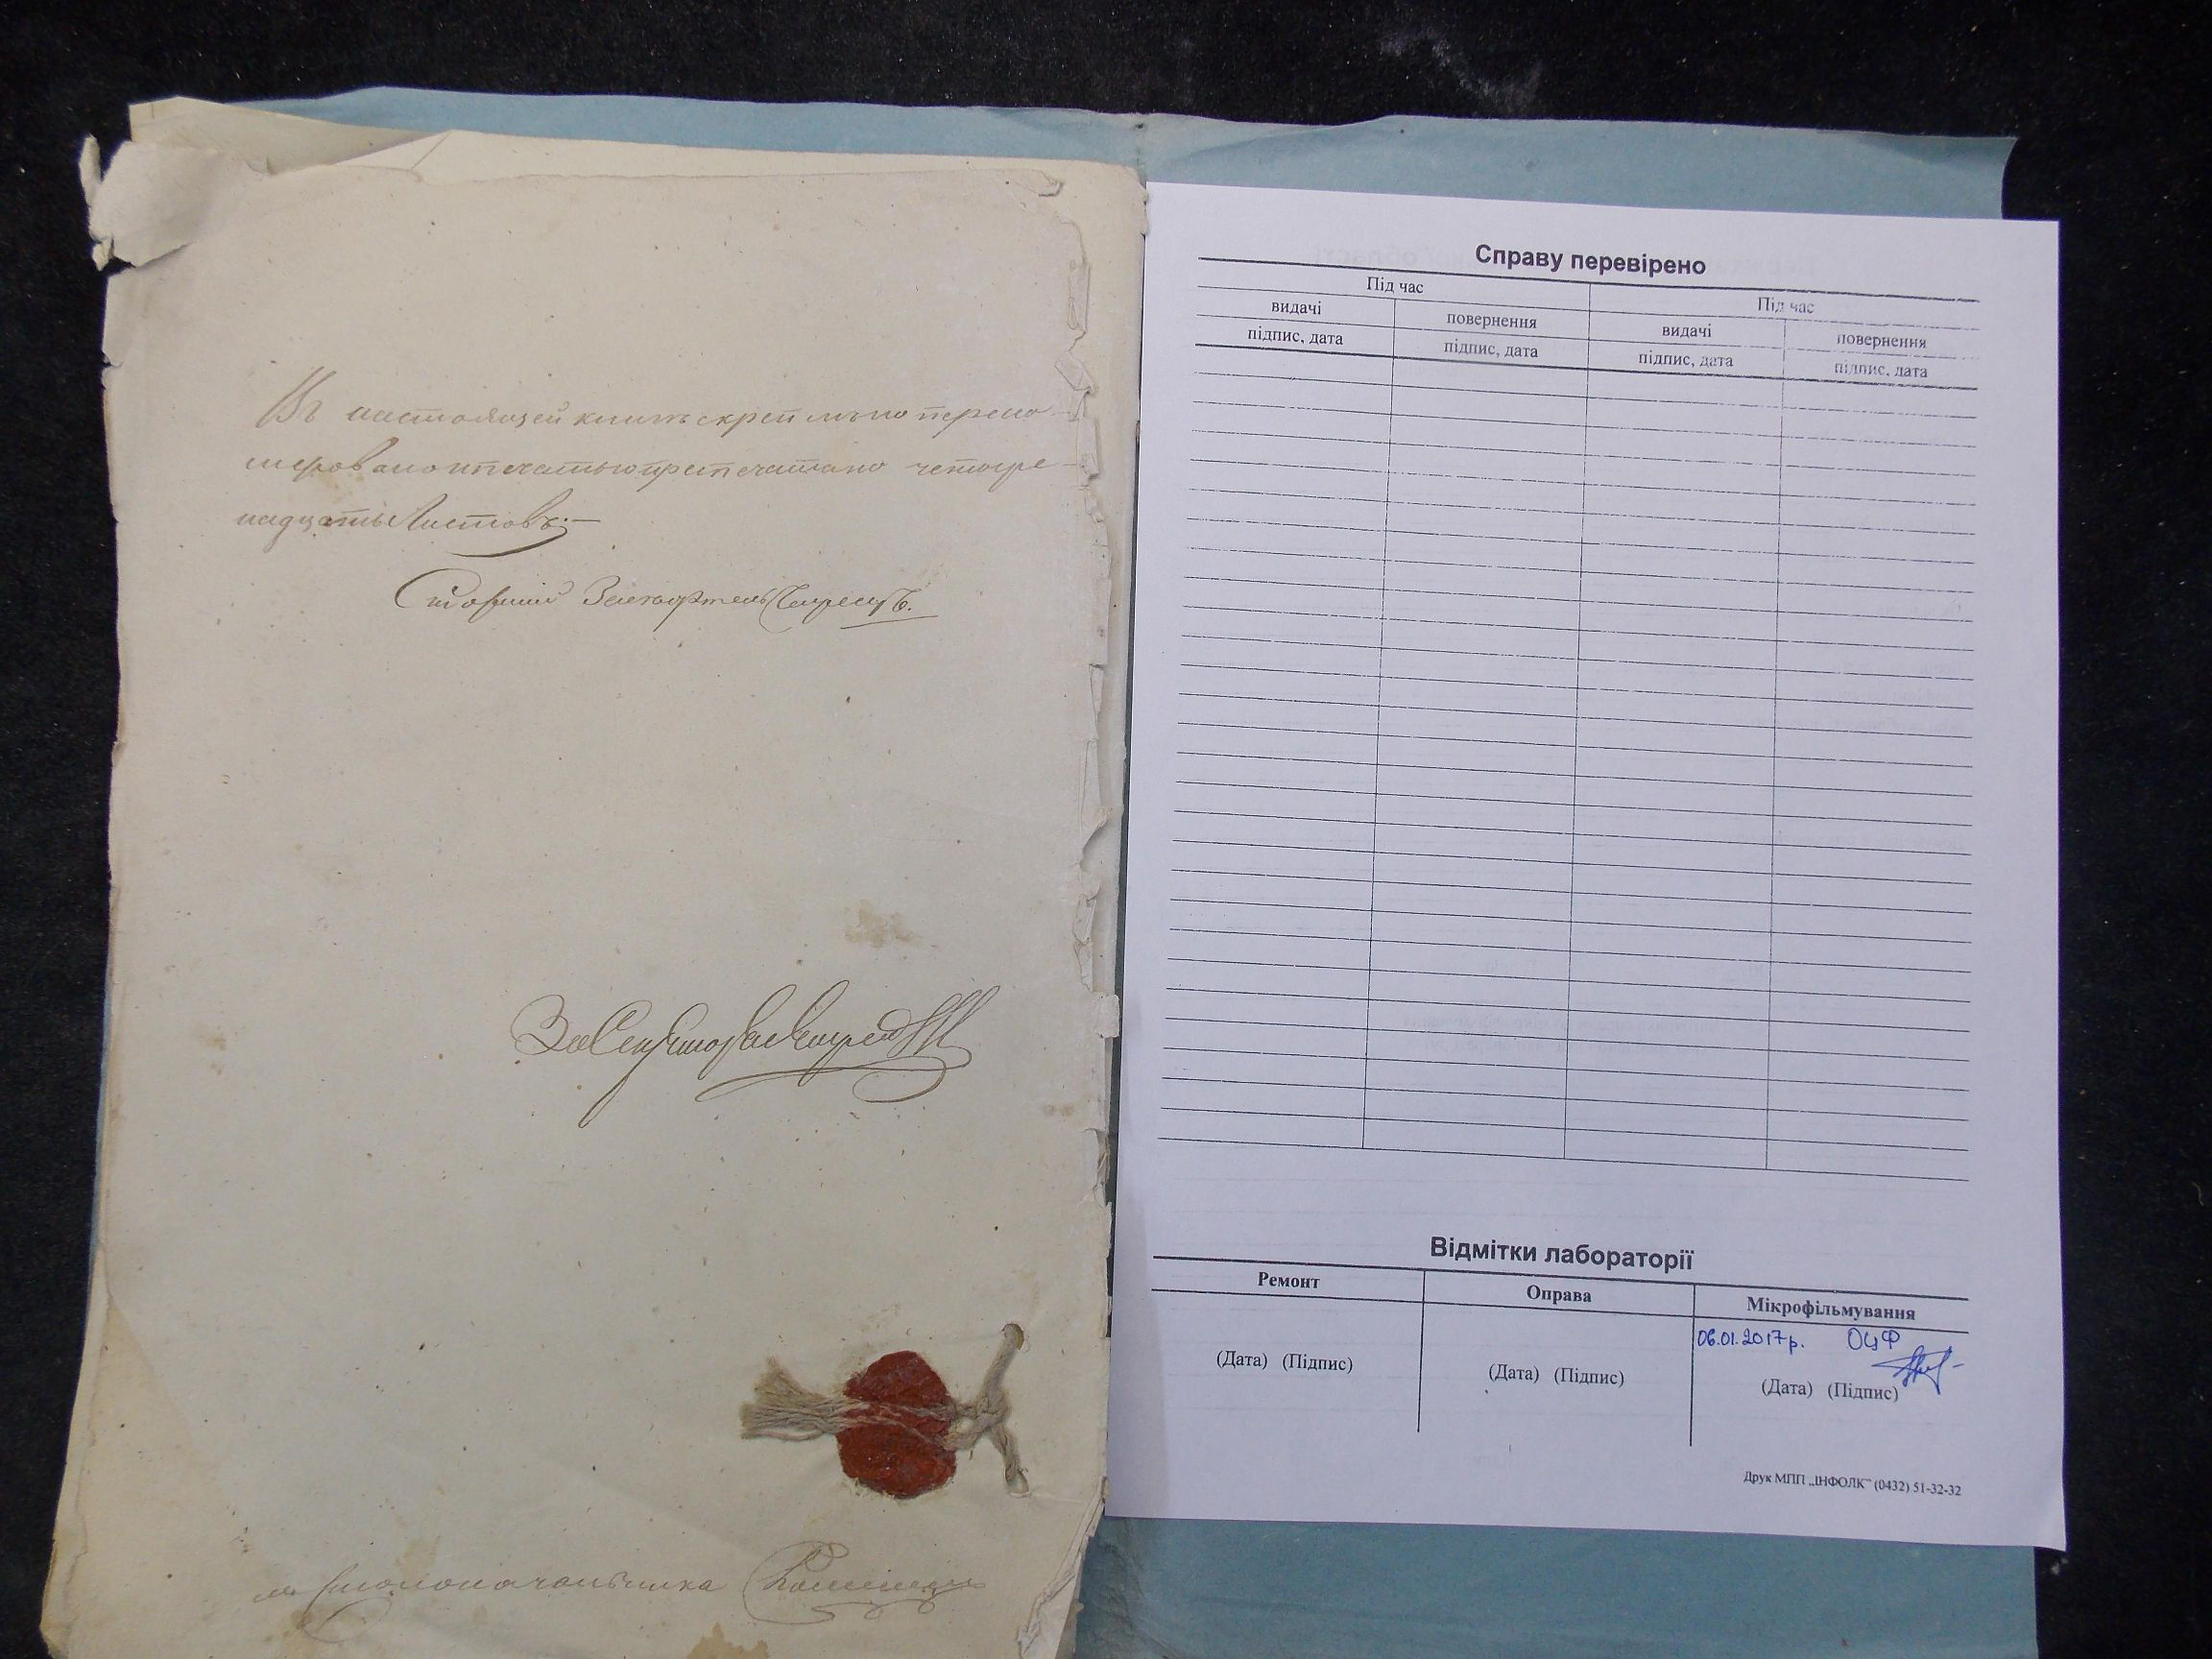 Въ настоящей книгѣ скрепленно перено-
мерованно и печатью препечатано четыре-
надцать Листовъ.—
За Секретаря
Столоначальника
Справу перевірено
Під час Під час
видачі повернення видачі повернення
підпис, дата підпис, дата підпис, дата підпис, дата
Відмітки лабораторії
Ремонт Оправа Мікрофільмування
06.01.2017р. ОЦФ
(Дата) (Підпис) (Дата) (Підпис) (Дата) (Підпис)
Друк МПП „ІНФОЛК" (0432) 51-32-32